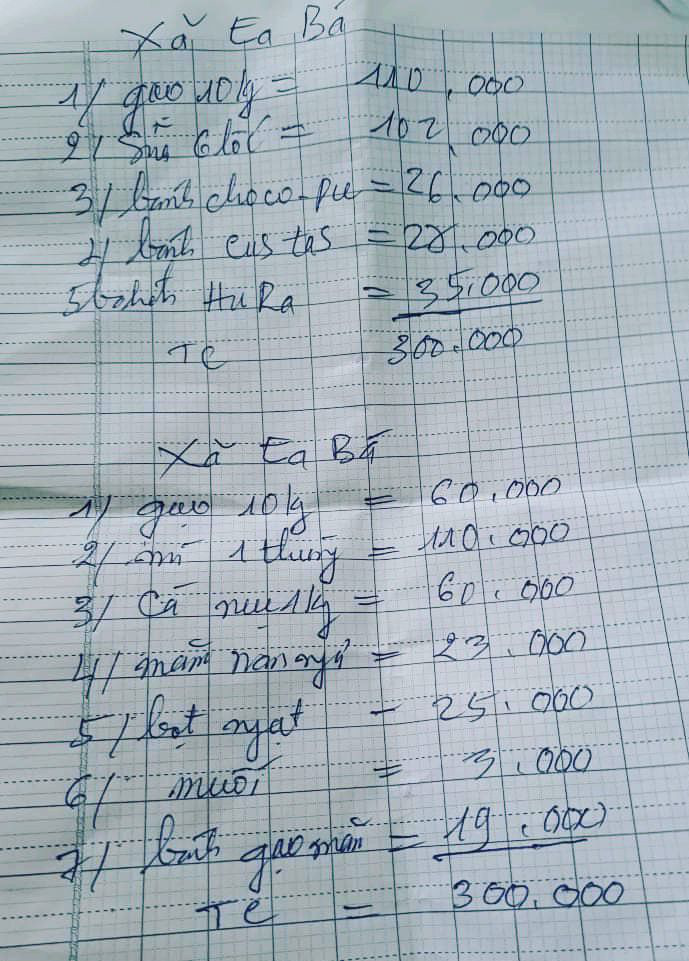 Xã Ea Bá
1/ gạo 10kg = 110.000
2/ Sữa 6 lốc = 102.000
3/ bánh choco-pie = 26.000
4/ bánh custas = 27.000
5 bánh HuRa = 35.000
TC 300.000
Xã Ea Bá
1/ gạo 10kg = 60.000
2/ mì 1 thùng = 110.000
3/ Cá nụ 1kg = 60.000
4/ mắm nam ngư = 23.000
5/ bột ngọt - 25.000
6/ muối = 3.000
7/ bánh gạo mặn = 19.000
TC = 300.000